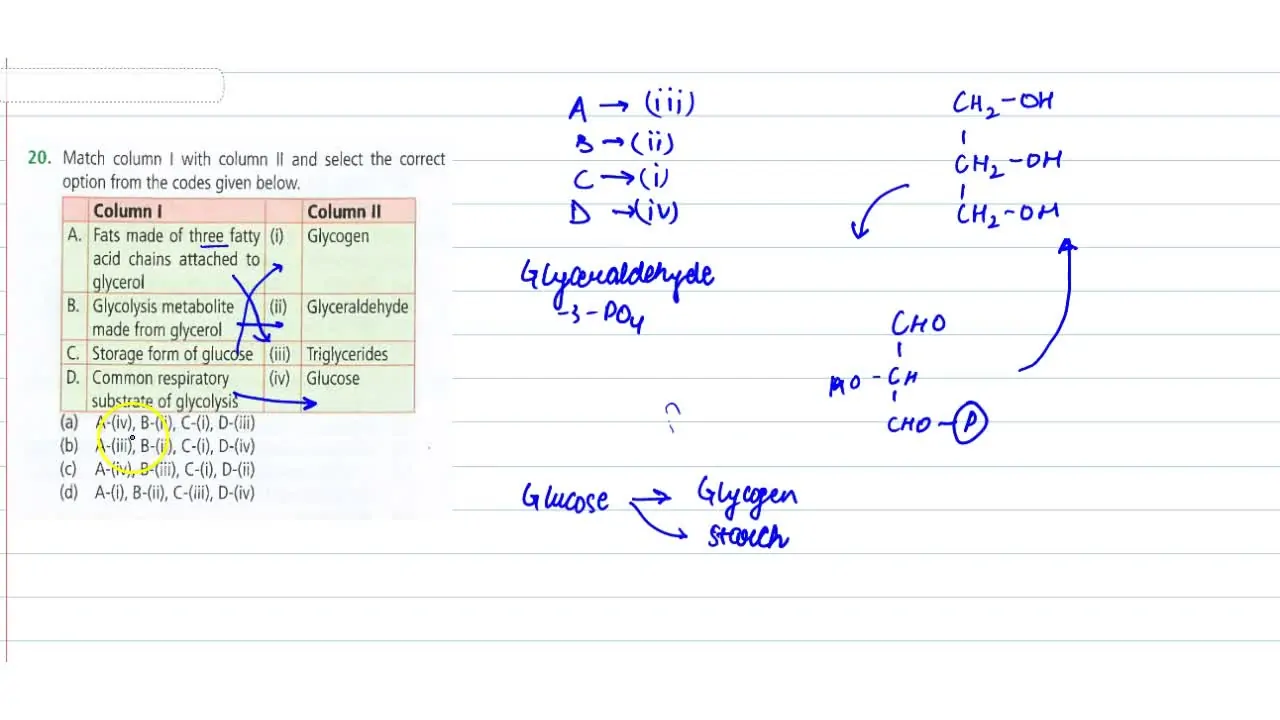 20. Match column I with column II and select the correct
option from the codes given below.
Column I Column II
A. Fats made of three fatty (i) Glycogen
acid chains attached to
glycerol
B. Glycolysis metabolite (ii) Glyceraldehyde
made from glycerol
C. Storage form of glucose (iii) Triglycerides
D. Common respiratory (iv) Glucose
substrate of glycolysis
(a) A-(iv), B-(ii), C-(i), D-(iii)
(b) A-(iii), B-(ii), C-(i), D-(iv)
(c) A-(iv), B-(iii), C-(i), D-(ii)
(d) A-(i), B-(ii), C-(iii), D-(iv)
A → (iii)
B → (ii)
C → (i)
D → (iv)
Glyceraldehyde
-3-PO4
Glucose → Glycogen
Starch
CH2-OH
CH2-OH
CH2-OH
CHO
HO-CH
CHO-P